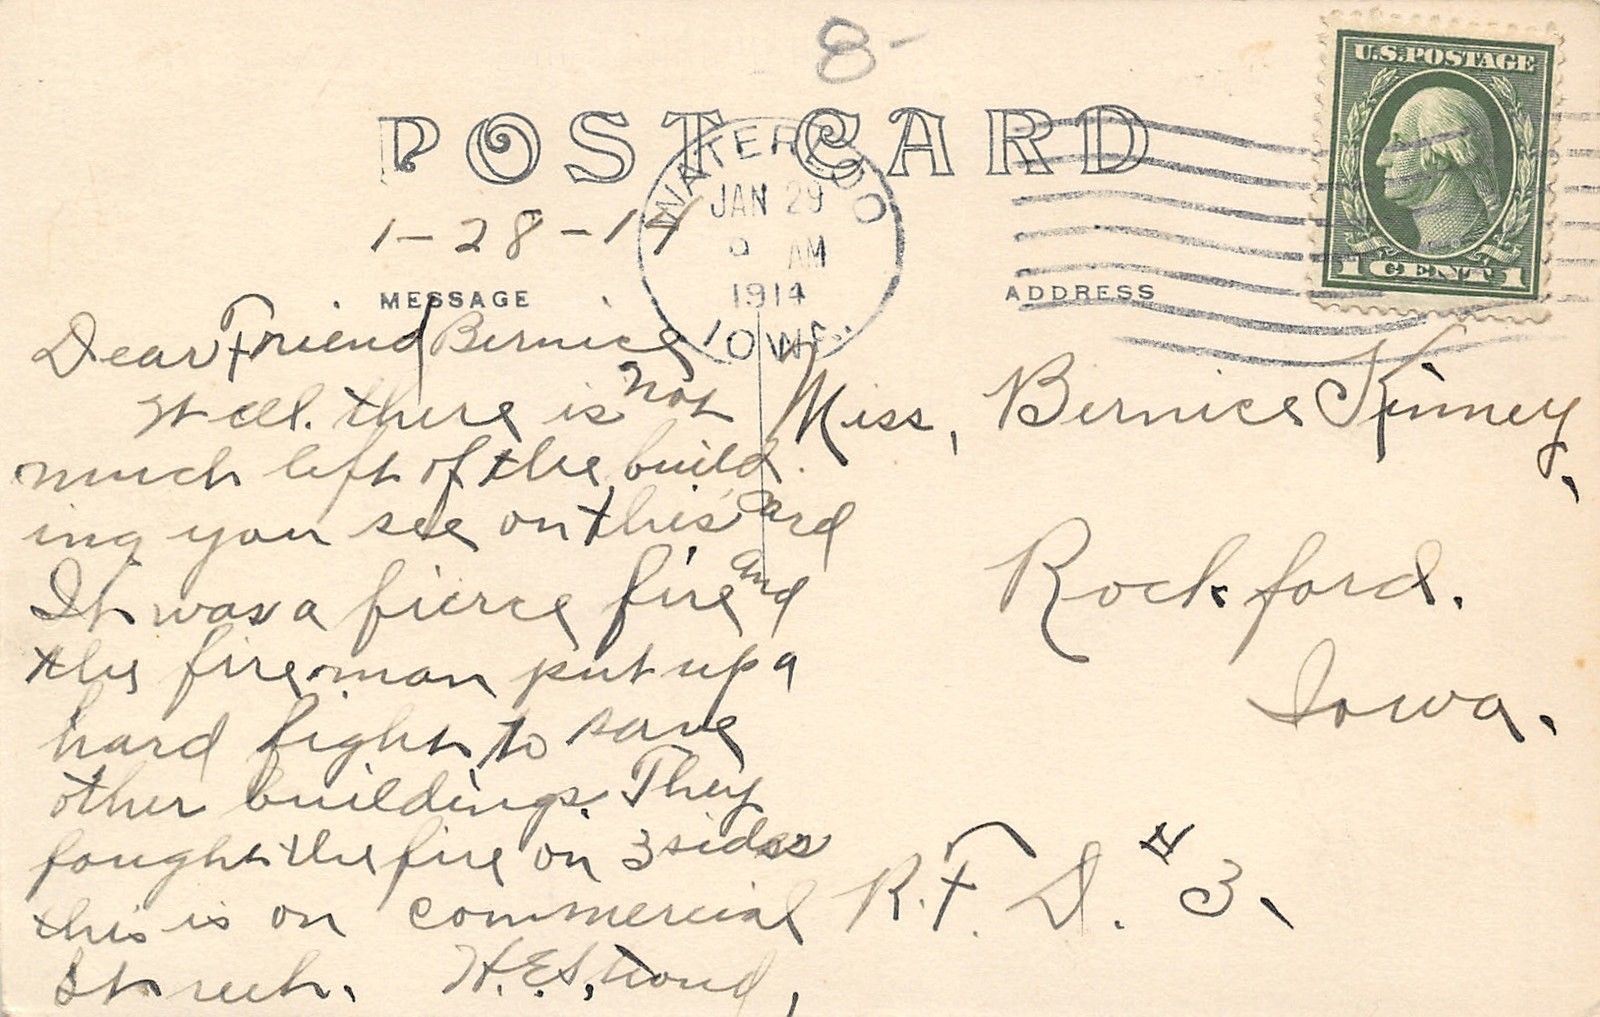 8-
U.S. POSTAGE
1 CENT 1
POST CARD
WATERLOO
JAN 29
9 AM
1914
IOWA.
1-28-14
MESSAGE
ADDRESS
Dear Friend Bernice
Well. there is not
much left of the build
ing you see on this card
It was a fierce fire and
the fireman put up a
hard fight to save
other buildings. They
fought the fire on 3 sides
this is on commercial
Street.
Miss, Bernice Kinney,
Rockford.
Iowa.
R.F.D. #3.